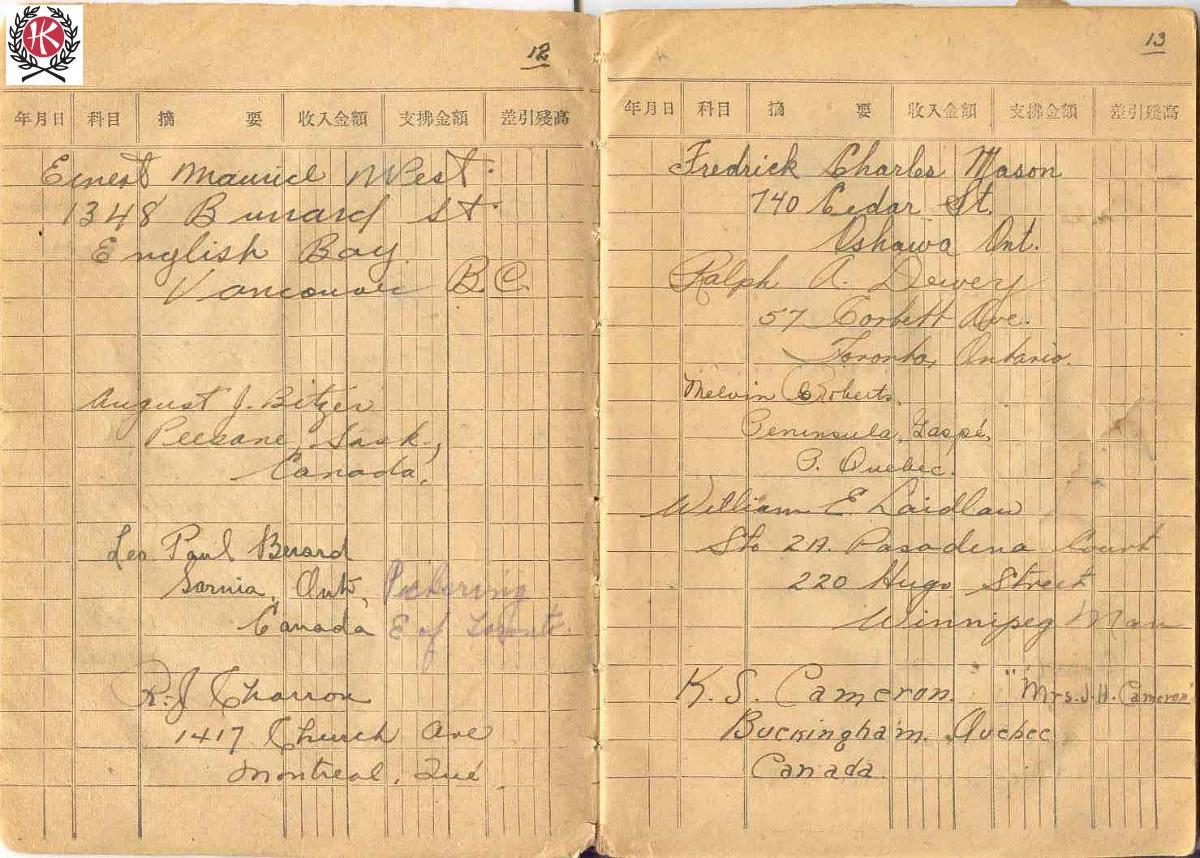 HK
12
年月日 科目 摘 要 收入金額 支拂金額 差引殘高
Ernest Maurice West.
1348 Burrard St.
English Bay.
Vancouver B.C.
August J. Bitzer
Peesane, Sask.,
Canada.
Leo Paul Berard
Sarnia, Ont, Pickering
Canada E of Toronto.
R.J. Charron
1417 Church Ave
Montreal, Qué
13
年月日 科目 摘 要 收入金額 支拂金額 差引殘高
Fredrick Charles Mason
740 Cedar St.
Oshawa Ont.
Ralph A. Dewey
57 Corbett Ave.
Toronto, Ontario.
Melvin Roberts.
Peninsula, Gaspé,
P. Quebec.
William E Laidlaw
Ste 2A. Pasadena Court
220 Hugo Street
Winnipeg Man
K. S. Cameron. "Mrs. J. H. Cameron"
Buckingham. Quebec
Canada